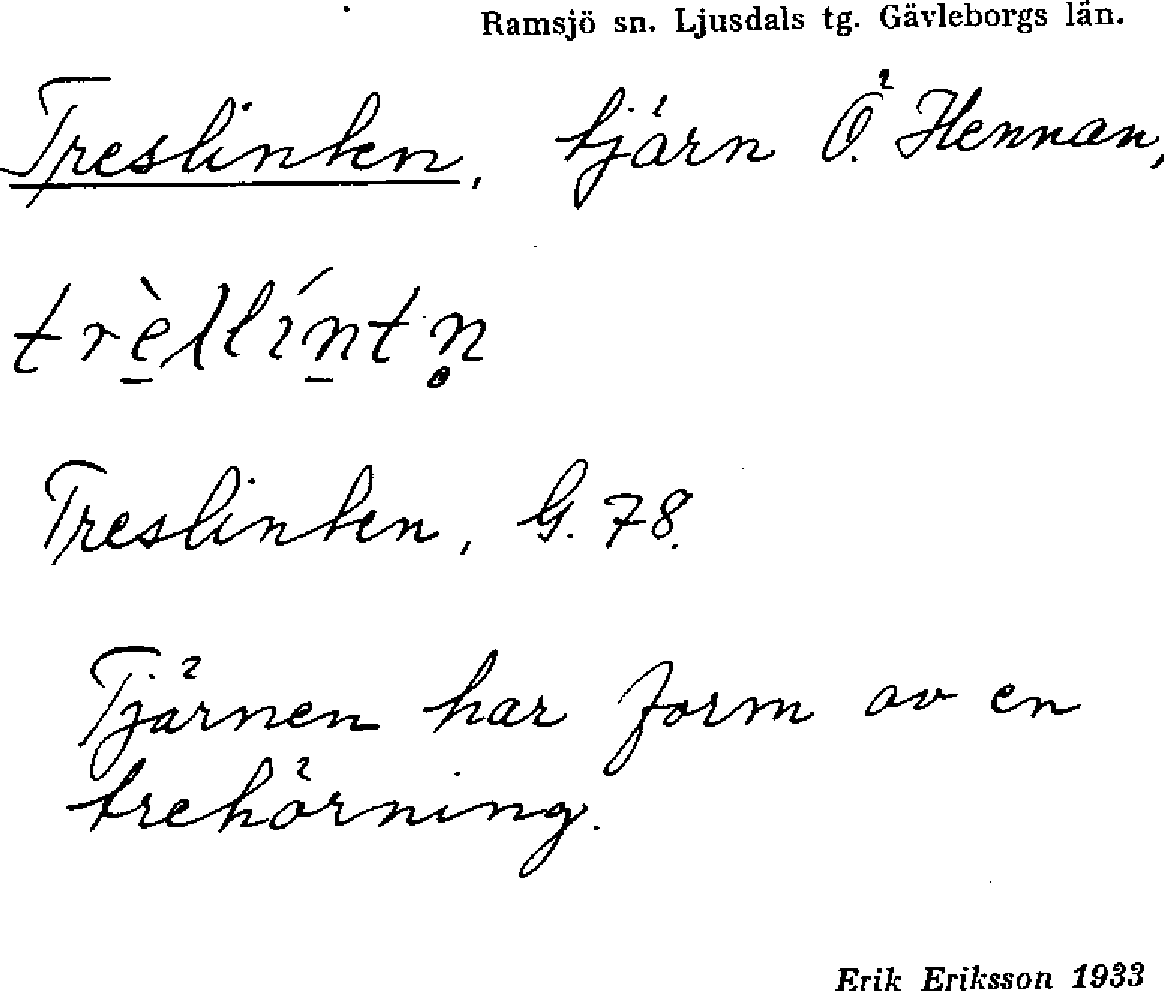 Ramsjö sn. Ljusdals tg. Gävleborgs län.
Treslinten, tjärn Ö. Hennan,
Treslinten, G. 78.
Tjärnen har form av en
trehörning.
Erik Eriksson 1933